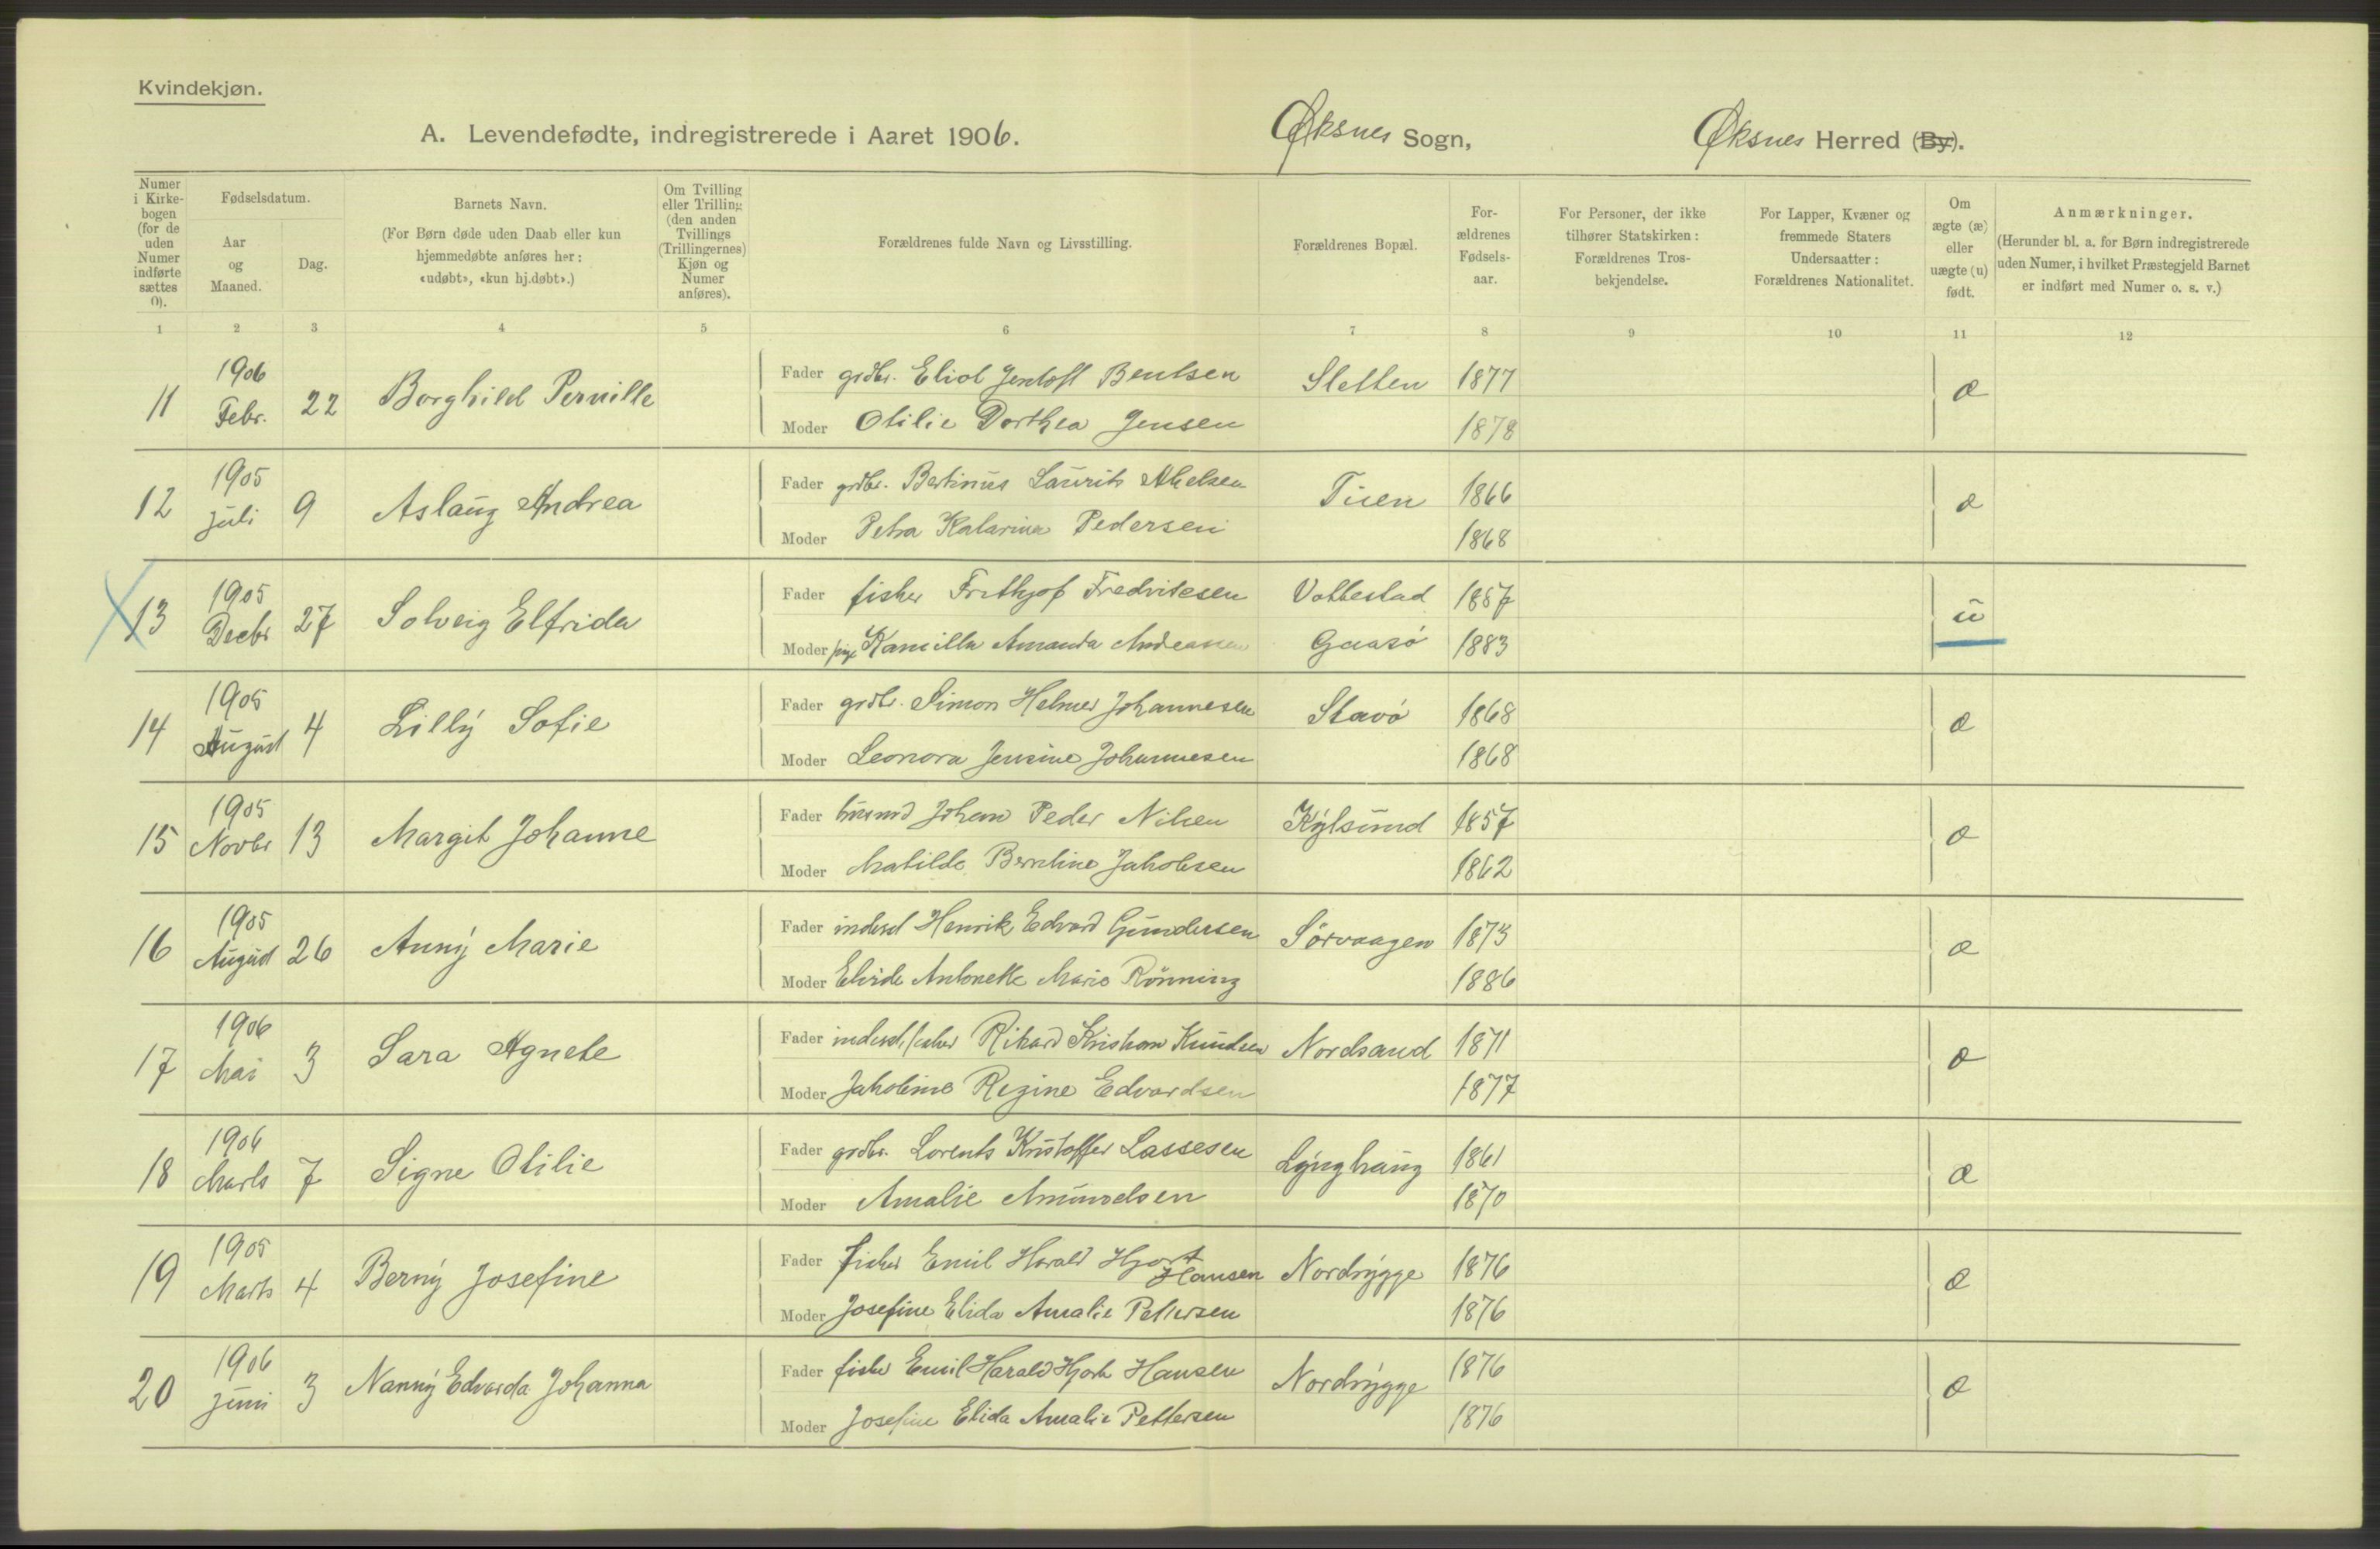 Kvindekjøn.
A. Levendefødte, indregistrerede i Aaret 1906. Øksnes Sogn, Øksnes Herred (By).
Numer i Kirkebogen (for de uden Numer indførte sættes 0).
Fødselsdatum.
Aar og Maaned.
Dag.
Barnets Navn.
(For Børn døde uden Daab eller kun hjemmedøbte anføres her: «udøbt», «kun hj.døbt».)
Om Tvilling eller Trilling (den anden Tvillings (Trillingernes) Kjøn og Numer anføres).
Forældrenes fulde Navn og Livsstilling.
Forældrenes Bopæl.
Forældrenes Fødselsaar.
For Personer, der ikke tilhører Statskirken: Forældrenes Trosbekjendelse.
For Lapper, Kvæner og fremmede Staters Undersaatter: Forældrenes Nationalitet.
Om ægte (æ) eller uægte (u) født.
Anmærkninger.
(Herunder bl. a. for Børn indregistrerede uden Numer, i hvilket Præstegjeld Barnet er indført med Numer o. s. v.)
1 2 3 4 5 6 7 8 9 10 11 12
11 1906 Febr. 22 Borghild Pernille Fader grdbr. Eliot Jentoft Bentsen Sletten 1877 æ
Moder Otilie Dorthea Jensen 1878
12 1905 Juli 9 Aslaug Andrea Fader grdbr. Bertinus Laurits Abelsen Tisen 1866 æ
Moder Petra Katarina Pedersen 1868
13 1905 Decbr 27 Solveig Elfrida Fader fisker Frithjof Fredriksen Vottestad 1887 u
Moder pige Kamilla Amanda Andreassen Gaasø 1883
14 1905 August 4 Lilly Sofie Fader grdbr. Simon Helmer Johannesen Stavø 1868 æ
Moder Leonora Jensine Johannesen 1868
15 1905 Novbr 13 Margit Johanne Fader husmd Johan Peder Nilsen 1857 æ
Moder Matilde Berntine Jakobsen 1862
16 1905 August 26 Anny Marie Fader inderst Henrik Edvard Gundersen Sørvaagen 1873 æ
Moder Antonette Marie Rønning 1886
17 1906 Mai 3 Sara Agnete Fader inderst, fisker Rikard Kristian Knudsen Nordsand 1871 æ
Moder Jakobine Regine Edvardsen 1877
18 1906 Marts 7 Signe Otilie Fader grdbr. Lorents Kristoffer Lassesen Lynghaug 1861 æ
Moder Amalie Amundsen 1870
19 1905 Marts 4 Berny Josefine Fader fisker Emil Harald Hjort Hansen Nordrygge 1876 æ
Moder Josefine Elida Amalie Pettersen 1876
20 1906 Juni 3 Nanny Edvarda Johanna Fader fisker Emil Harald Hjort Hansen Nordrygge 1876 æ
Moder Josefine Elida Amalie Pettersen 1876